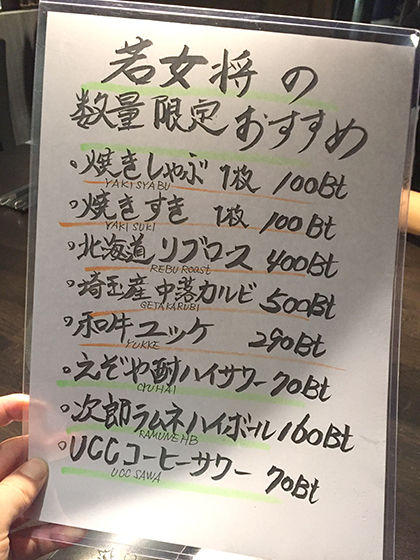 若女将の
数量限定おすすめ
・焼きしゃぶ 1枚 100Bt
YAKISYABU
・焼きすき 1枚 100Bt
YAKI SUKI
・北海道 リブロース 400Bt
REBU Roast
・埼玉産 中落カルビ 500Bt
GETAKARUBI
・和牛ユッケ 290Bt
YUKKE
・えぞや酎ハイサワー 70Bt
CYUHAI
・次郎ラムネハイボール 160Bt
RAMUNEHB
・UCCコーヒーサワー 70Bt
UCC SAWA